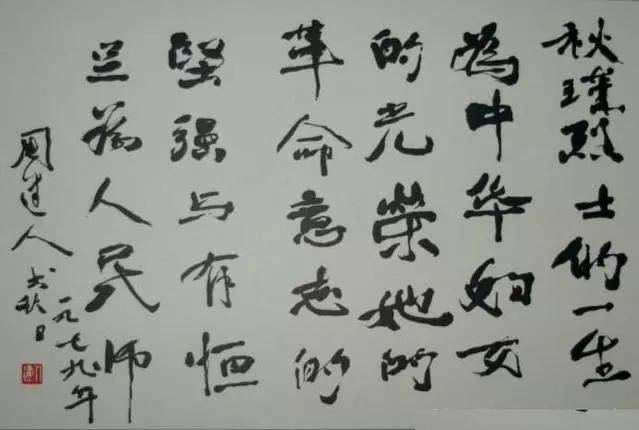 秋瑾烈士的一生
為中华妇女
的光榮她的
革命意志的
堅强与有恒
为人民师
周建人
秋日
一九七九年